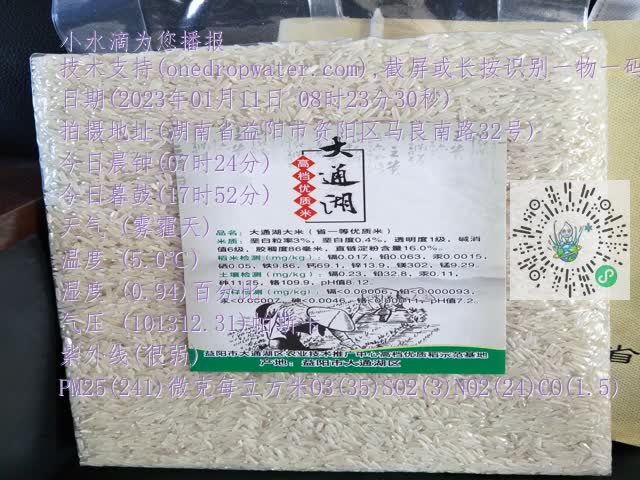 小水滴为您播报
技术支持(onedropwater.com),截屏或长按识别一物一码
日期(2023年01月11日 08时23分30秒)
拍摄地址(湖南省益阳市资阳区马良南路32号)
今日晨钟(07时24分)
今日暮鼓(17时52分)
天气 (雾霾天)
温度 (5.0℃)
湿度 (0.94)百分
气压 (101312.31)帕斯卡
紫外线(很弱)
PM25(241)微克每立方米O3(35)SO2(3)NO2(24)CO(1.5)
大通湖
高档优质米
品名:大通湖大米(省一等优质米)
米质:垩白粒率3%,垩白度0.4%,透明度1级,碱消
值6级,胶稠度86毫米,直链淀粉含量16.0%。
稻米检测(mg/kg):镉0.017,铅0.063,汞0.0015,
硒0.05,铁9.86,钙69.1,锌13.9,镁302,锰9.29.
土壤检测(mg/kg):镉0.23,铅32.8,汞0.11,
砷11.25,铬109.9,pH值8.12.
(mg/kg):镉<0.00006,铅<0.000093,
汞<0.00007,砷<0.0046,铬<0.00011,pH值7.2.
益阳市大通湖区农业技术推广中心高档优质稻示范基地
产地:益阳市大通湖区
省